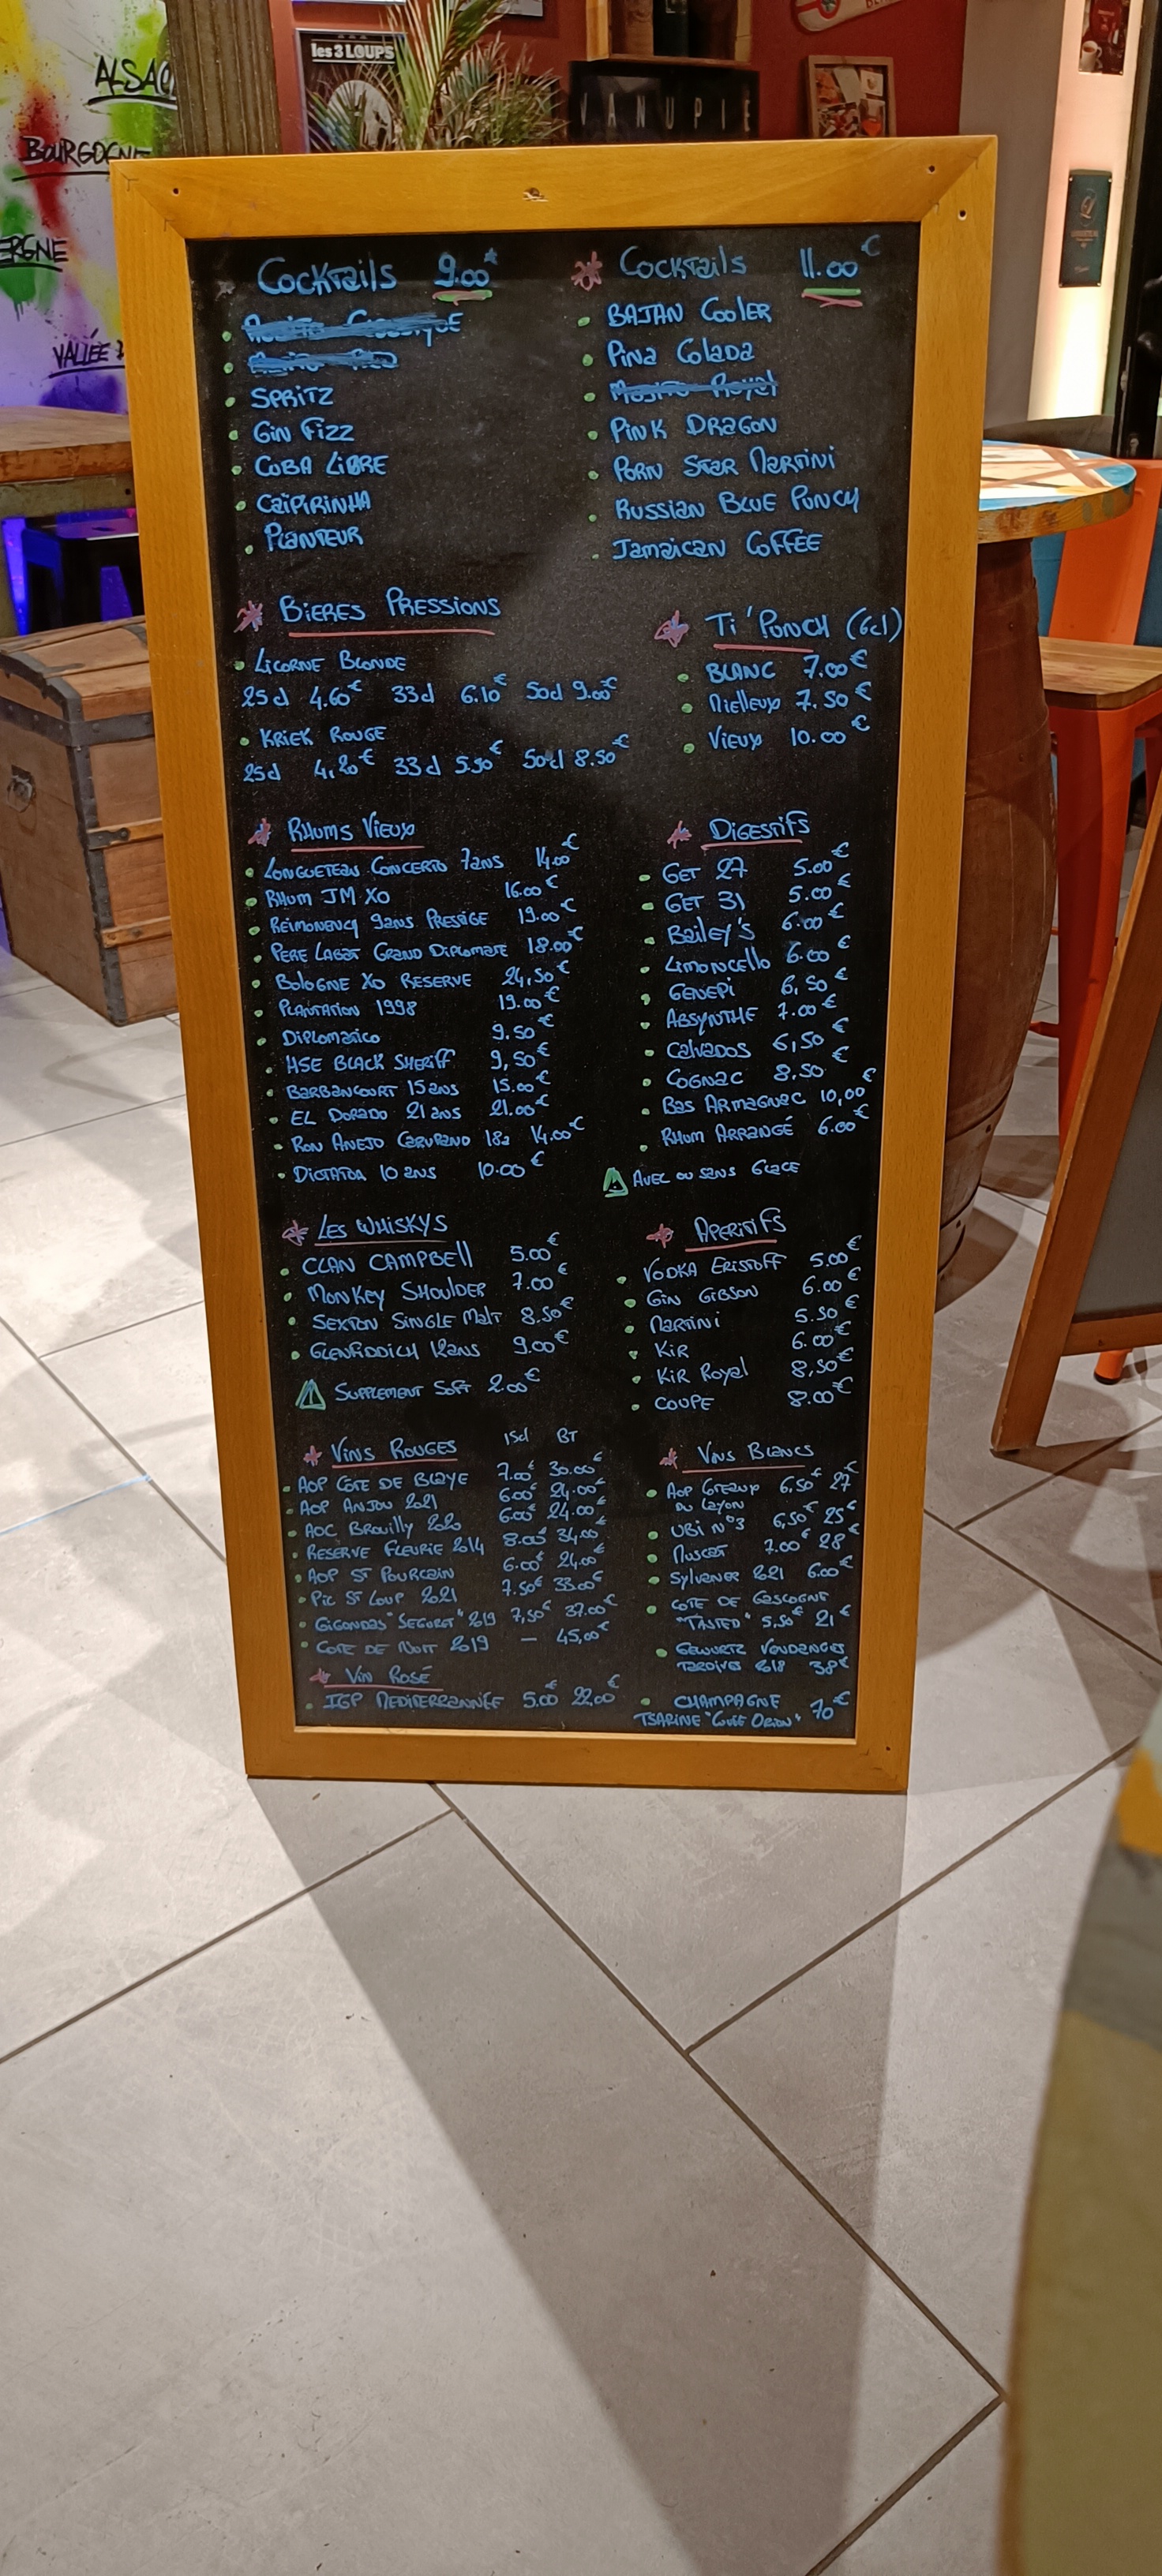 ALSAC
BOURGOGNE
ERGNE
VALLÉE
les 3 LOUPS
VANUPIE
Cocktails 9.00€
SPRITZ
Gin Fizz
CUBA LIBRE
CAÏPIRINHA
PLANTEUR
Cocktails 11.00€
BAJAN COOLER
Pina Colada
Mojito Royal
PINK DRAGON
PORN STAR MARTINI
RUSSIAN BLUE PUNCH
JAMAICAN COFFEE
BIERES PRESSIONS
LICORNE BLONDE
25cl 4.60€ 33cl 6.10€ 50cl 9.00€
KRIEK ROUGE
25cl 4,20€ 33cl 5.90€ 50cl 8.50€
Ti'PUNCH (6cl)
BLANC 7.00€
MIELLEUX 7.50€
VIEUX 10.00€
RHUMS VIEUX
LONGUETEAU CONCERTO 7ans 14.00€
RHUM JM XO 16.00€
REIMONENCQ 9ans PRESTIGE 19.00€
PERE LABAT GRAND DIPLOMATE 18.00€
BOLOGNE XO RESERVE 24,50€
PLANTATION 1998 19.00€
DIPLOMATICO 9.50€
HSE BLACK SHERIFF 9,50€
BARBANCOURT 15 ans 15.00€
EL DORADO 21 ans 21.00€
RON ANEJO CARUPANO 18a 14.00€
DICTATDA 10 ans 10.00€
DIGESTIFS
GET 27 5.00€
GET 31 5.00€
BAILEY'S 6.00€
LIMONCELLO 6.00€
GENEPI 6,50€
ABSYNTHE 7.00€
CALVADOS 6,50€
COGNAC 8.50€
BAS ARMAGNAC 10,00€
RHUM ARRANGÉ 6.00€
AVEC OU SANS GLACE
LES WHISKYS
CLAN CAMPBELL 5.00€
MONKEY SHOULDER 7.00€
SEXTON SINGLE MALT 8.50€
GLENFIDDICH 12ans 9.00€
SUPPLEMENT SOFT 2.00€
APERITIFS
VODKA ERISTOFF 5.00€
GIN GIBSON 6.00€
MARTINI 5.50€
KIR 6.00€
KIR ROYAL 8,50€
COUPE 8.00€
VINS ROUGES 15cl BT
AOP COTE DE BLAYE 7.00€ 30.00€
AOP ANJOU 2021 6.00€ 24.00€
AOC BROUILLY 2020 6.00€ 24.00€
RESERVE FLEURIE 2014 8.00€ 34.00€
AOP ST POURCAIN 6.00€ 24.00€
PIC ST LOUP 2021 7.50€ 33.00€
GIGONDAS "SEGURET" 2019 7,50€ 37.00€
COTE DE NUIT 2019 — 45,00€
VIN ROSÉ
IGP MEDITERRANNÉE 5.00€ 22,00€
VINS BLANCS
AOP COTEAUX DU LAYON 6,50€ 27€
UBI N°3 6,50€ 25€
MUSCAT 7.00€ 28€
SYLVANER 2021 6.00€
COTE DE GASCOGNE
"TASTED" 5,50€ 21€
GEWURTZ VENDANGES
TARDIVES 2018 38€
CHAMPAGNE
TSARINE "CUVÉE ORION" 70€